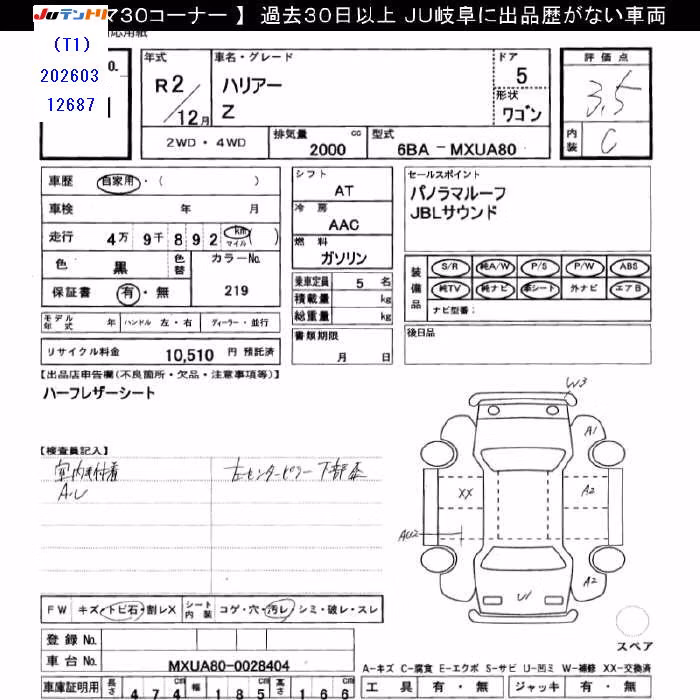 JUテントリ 730コーナー 】 過去30日以上 JU岐阜に出品歴がない車両
応用紙
(T1)
202603
12687
o.
年式 車名・グレード ドア
R2/12月 ハリアー 5
Z 形状
ワゴン
評価点
3.5
内装 C
2WD・4WD 排気量 cc 2000 型式 6BA-MXUA80
車歴 自家用・( )
車検 年 月
走行 4万 9千 8 9 2 km マイル ( )
色 黒 色替 カラーNo.
保証書 有・無 219
モデル年式 年 ハンドル 左・右 ディーラー・並行
リサイクル料金 10,510 円 預託済
シフト AT
冷房 AAC
燃料 ガソリン
乗車定員 5 名
積載量 kg
総重量 kg
書類期限
月 日
セールスポイント
パノラマルーフ
JBLサウンド
装備品 S/R 純A/W P/S P/W ABS
純TV 純ナビ 革シート 外ナビ エアB
ナビ型番:
後日品
【出品店申告欄(不良箇所・欠品・注意事項等)】
ハーフレザーシート
【検査員記入】
室内 付着 左センターピラー下部
AU
W3
A1
XX A2
AU2
A2
U1
FW キズ・トビ石・割レX シート内装 コゲ・穴・汚レ・シミ・破レ・スレ
スペア
登録 No.
車台 No. MXUA80-0028404
A-キズ C-腐食 E-エクボ S-サビ U-凹ミ W-補修 XX-交換済
車庫証明用 長さ 474 幅 185 高さ 166 工具 有・無 ジャッキ 有・無